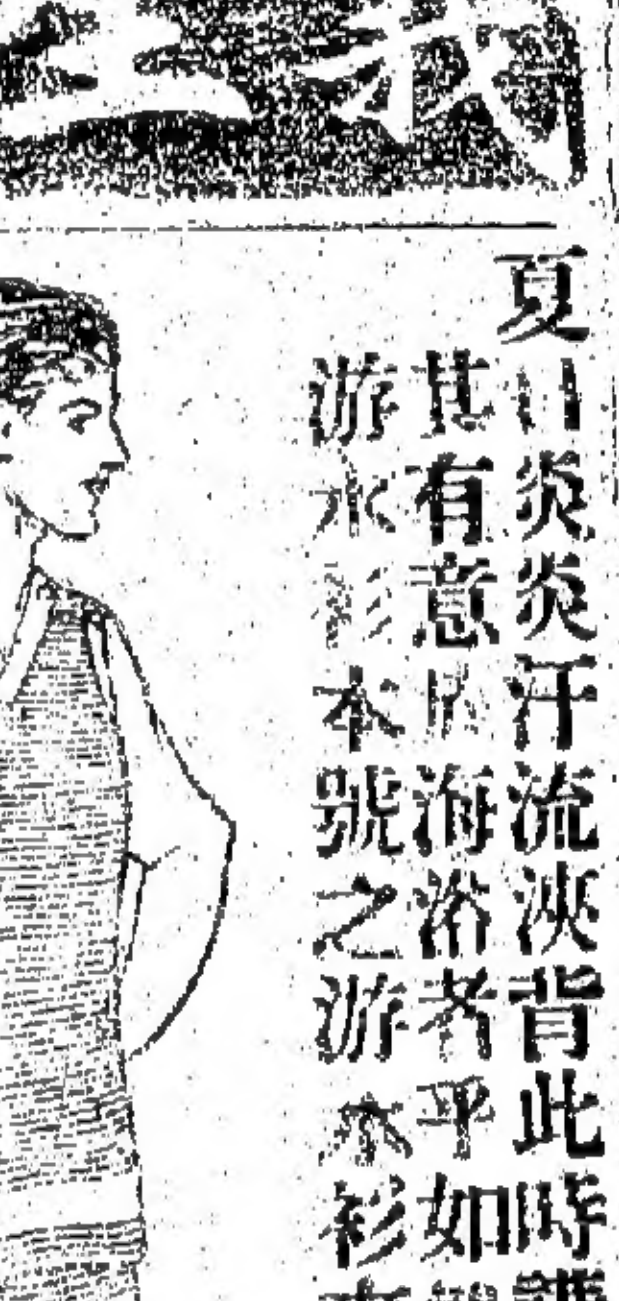 我
夏日炎炎汗流浹背此時
其有意於海浴者乎如
游水衫本號之游水衫